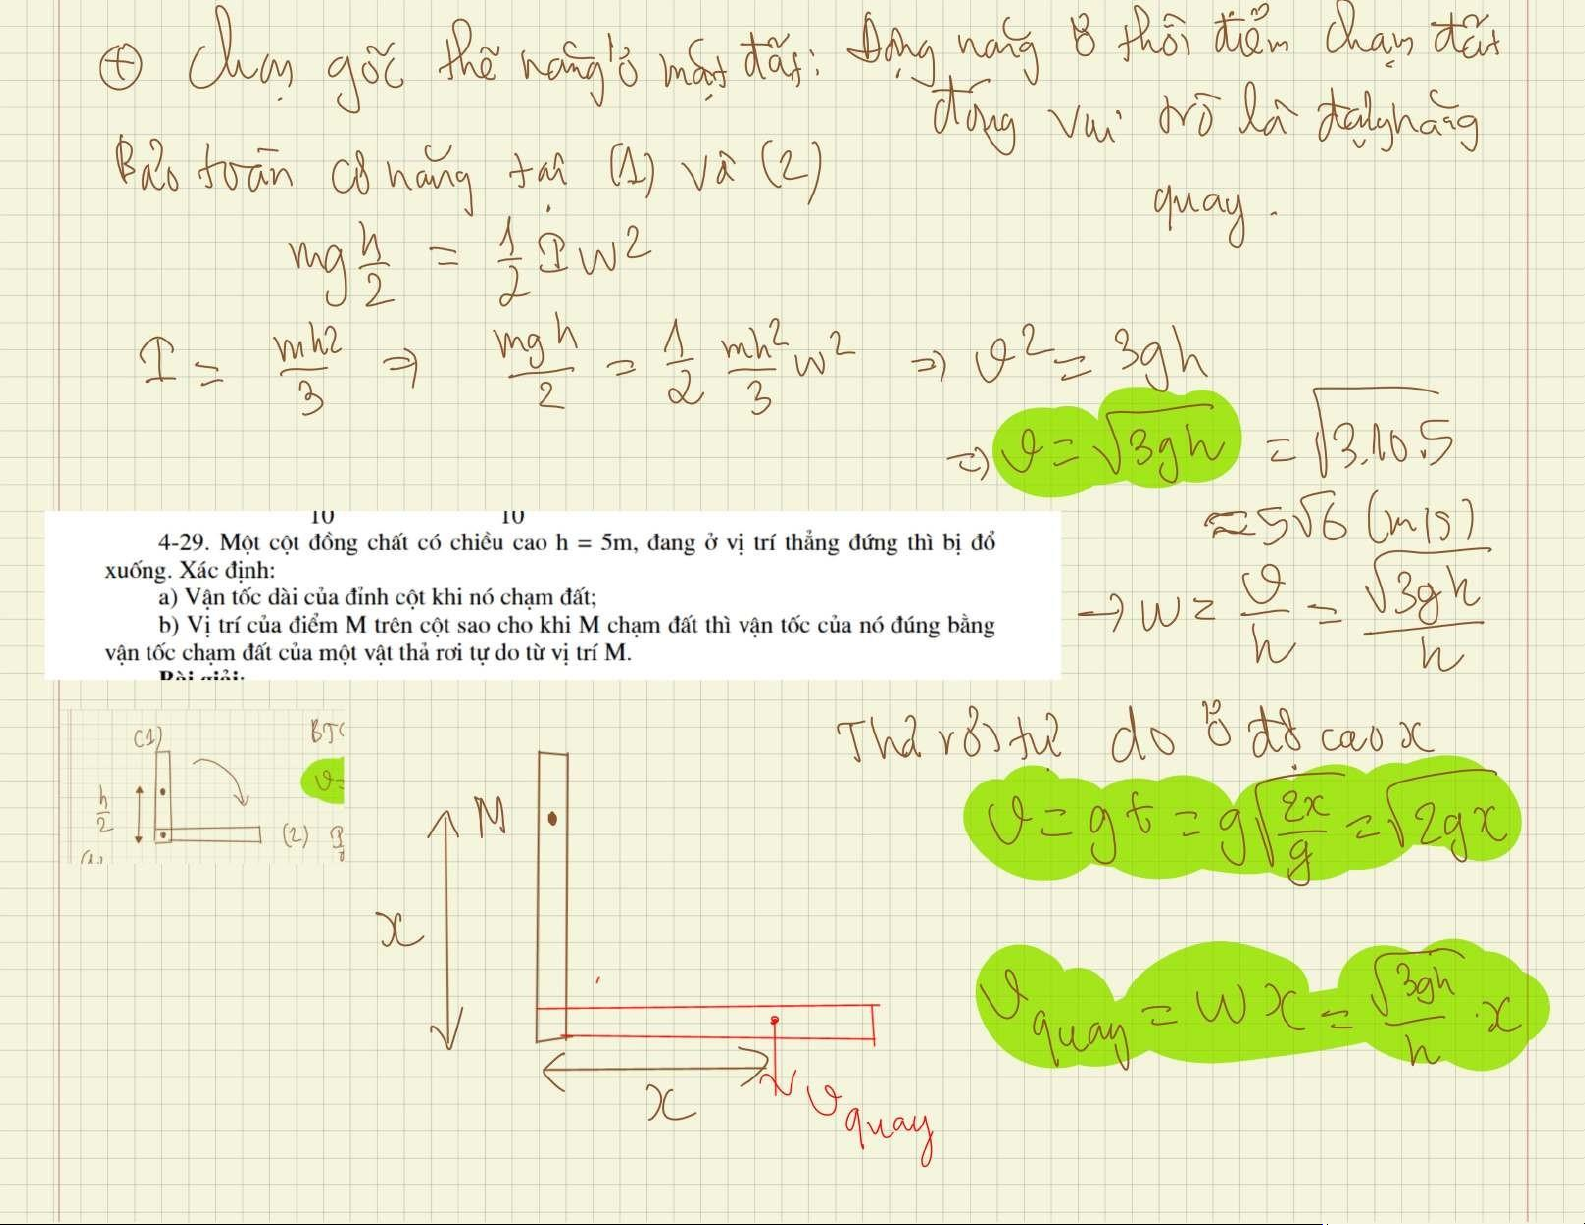 ⊕ Chọn gốc thế năng ở mặt đất: Động năng ở thời điểm chạm đất
đóng vai trò là động năng
quay.
Bảo toàn cơ năng tại (1) và (2)
mg h/2 = 1/2 I w²
I = mh²/3 ⇒ mgh/2 = 1/2 mh²/3 w² ⇒ v² = 3gh
⇒ v = √3gh = √3.10.5
≈ 5√6 (m/s)
→ w = v/h = √3gh/h
10 10
4-29. Một cột đồng chất có chiều cao h = 5m, đang ở vị trí thẳng đứng thì bị đổ
xuống. Xác định:
a) Vận tốc dài của đỉnh cột khi nó chạm đất;
b) Vị trí của điểm M trên cột sao cho khi M chạm đất thì vận tốc của nó đúng bằng
vận tốc chạm đất của một vật thả rơi tự do từ vị trí M.
Bài giải:
(1)
h/2
(2)
v=
Thả rơi tự do ở độ cao x
v = gt = g√2x/g = √2gx
M
x
v quay = wx = √3gh/h . x
x
v quay